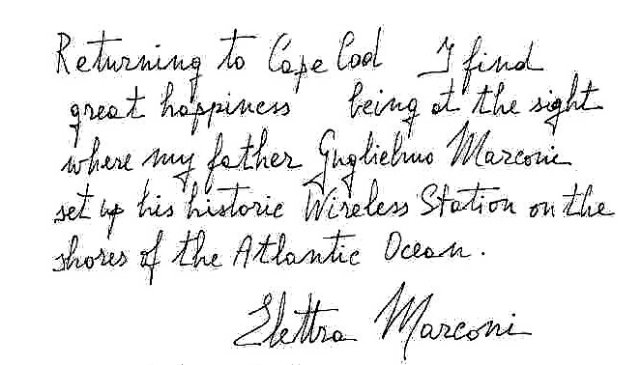 Returning to Cape Cod I find
great happiness being at the sight
where my father Guglielmo Marconi
set up his historic Wireless Station on the
shores of the Atlantic Ocean.
Elettra Marconi